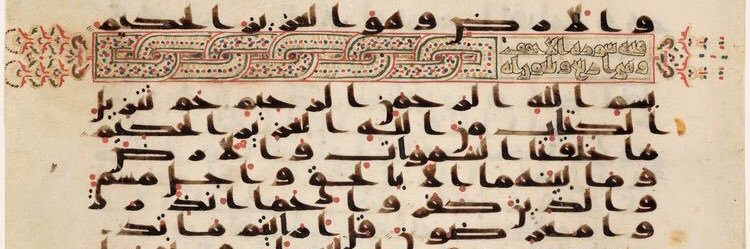 والارض وهو العزيز الحكيم
بسم الله الرحمن الرحيم حم تنزيل
الكتاب من الله العزيز الحكيم
ما خلقنا السموات والارض
وما بينهما الا بالحق واجل مسمى
والذين كفروا عما انذر
وا معرضون قل اريتم ما تد